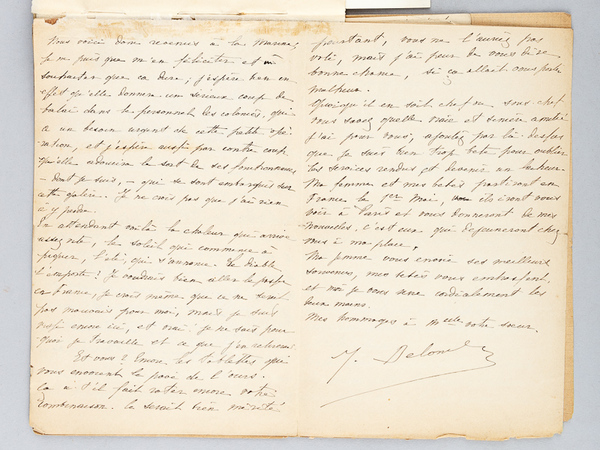 Nous voici donc revenus à la marine,
Je ne puis que m'en féliciter et
souhaiter que ça dure; j'espère bien en
effet qu'elle donnera un sérieux coup de
balai dans le personnel des colonies, qui
a un besoin urgent de cette petite opé-
ration, et j'espère aussi par contre coup
qu'elle adoucira le sort de ses fonctionnaires,
- dont je suis, - qui se sont embarqués sur
cette galère. Je ne crois pas que j'aie rien
à y perdre.
En attendant voilà la chaleur qui arrive
assez vite, le soleil qui commence à
piquer, l'été qui s'avance. Le diable
l'emporte! Je voudrais bien aller le passer
en France, je crois même que ce ne serait
pas mauvais pour moi, mais je suis
ici, et vrai je ne sais pour
quoi je travaille et ce que j'en retirerai.
Et vous? Encore les tablettes qui
vous envoient la peau de l'ours.
Ça a-t-il fait rater encore votre
combinaison. Ce serait bien mérité
pourtant, vous ne l'auriez pas
volé, mais j'ai peur de vous dire
bonne chance, si ça allait vous porter
malheur.
Quoiqu'il en soit, chef ou sous chef
vous savez quelle vraie et sincère amitié
j'ai pour vous, ajoutez par là-dessus
que je suis bien trop bête pour oublier
les services rendus et devenir un lâcheur.
Ma femme et mes bébés partiront en
France le 1er Mai, ils iront vous
voir à Paris et vous donneront de mes
nouvelles. c'est eux qui déjeuneront chez
vous à ma place.
Ma femme vous envoie ses meilleurs
souvenirs, mes bébés vous embrassent,
et moi je vous serre cordialement les
deux mains.
Mes hommages à Melle votre sœur.